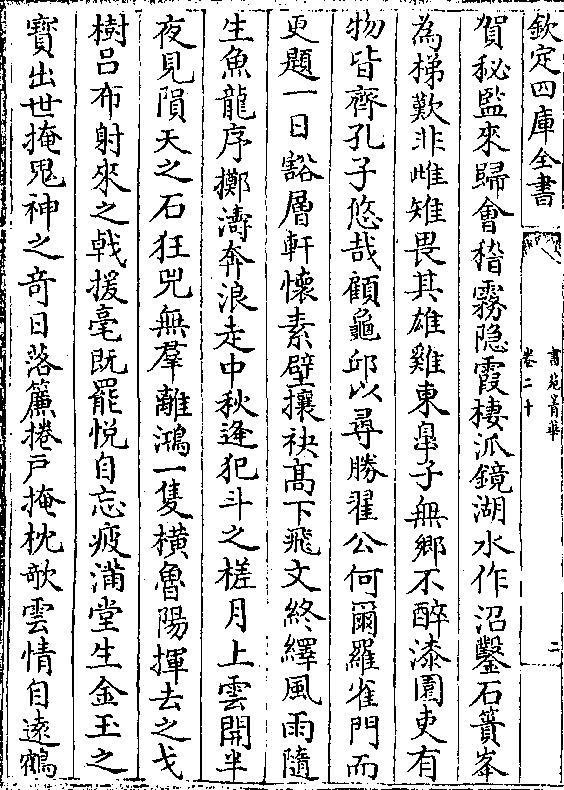 欽定四庫全書
書苑菁華
卷二十
二
賀秘監來歸會稽霧隐霞棲派鏡湖水作沼鑿石簣峯
為梯歎非雌雉畏其雄雞東臯子無鄉不醉漆園吏有
物皆齊孔子悠哉顧龜邱以尋勝翟公何爾羅雀門而
更題一日豁層軒懷素壁攘袂髙下飛文終繹風雨隨
生魚龍序擲濤奔浪走中秋逢犯斗之槎月上雲開半
夜見隕天之石狂兕無羣離鴻一隻横魯陽揮去之戈
樹吕布射來之戟援毫既罷悦自忘疲滿堂生金玉之
寳出世掩鬼神之竒日落簾捲戸掩枕欹雲情自遠鶴